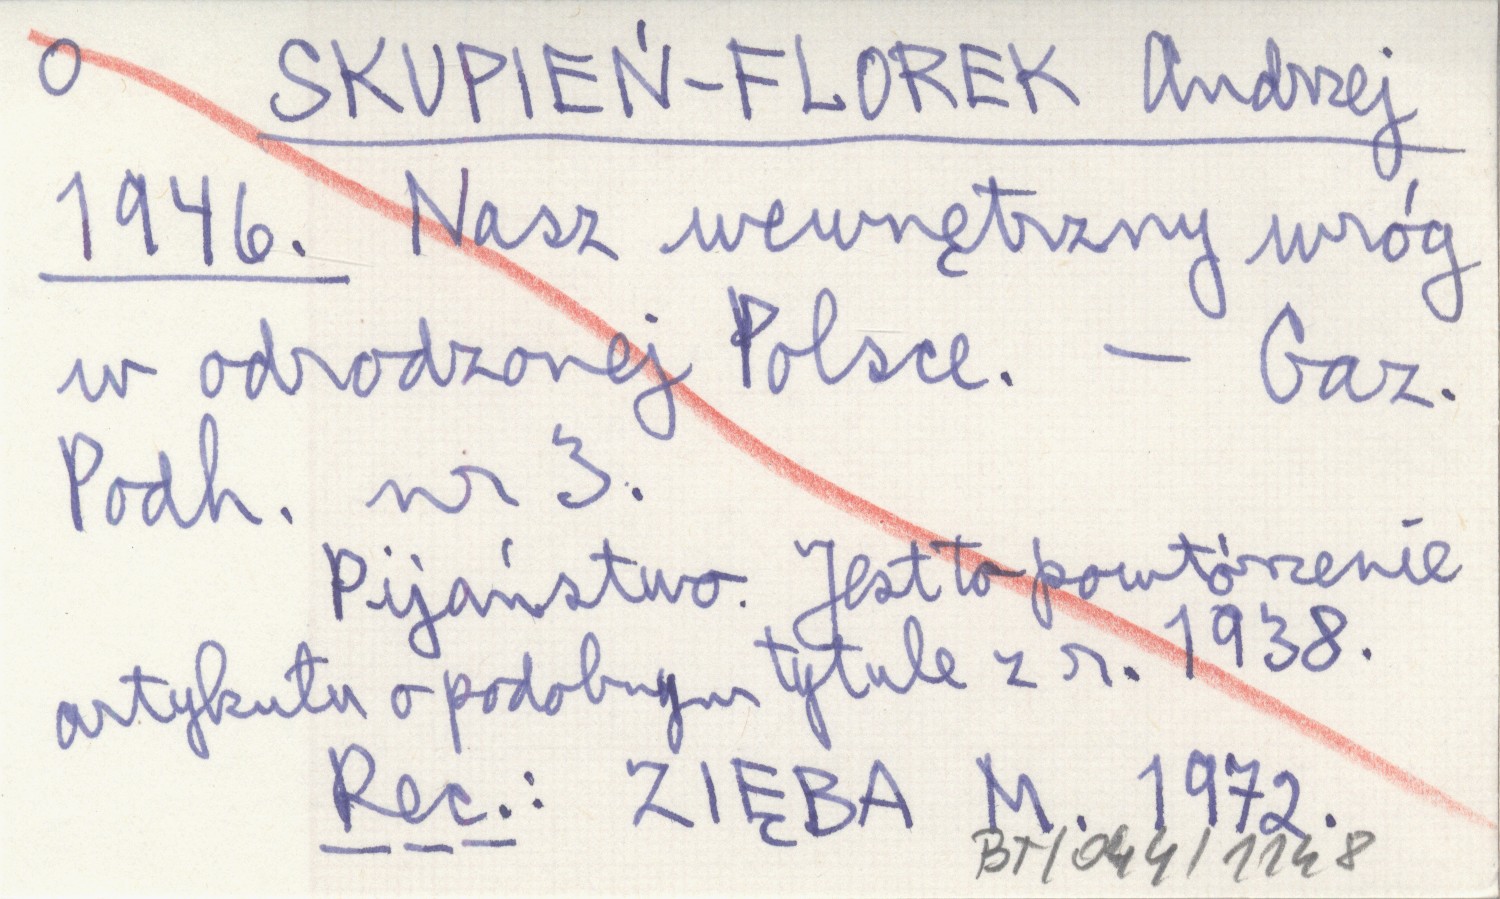 O SKUPIEŃ-FLOREK Andrzej
1946. Nasz wewnętrzny wróg
w odrodzonej Polsce. — Gaz.
Podh. nr 3.
Pijaństwo. Jest to powtórzenie
artykułu o podobnym tytule z r. 1938.
Rec.: ZIĘBA M. 1972.
BT/044/1148